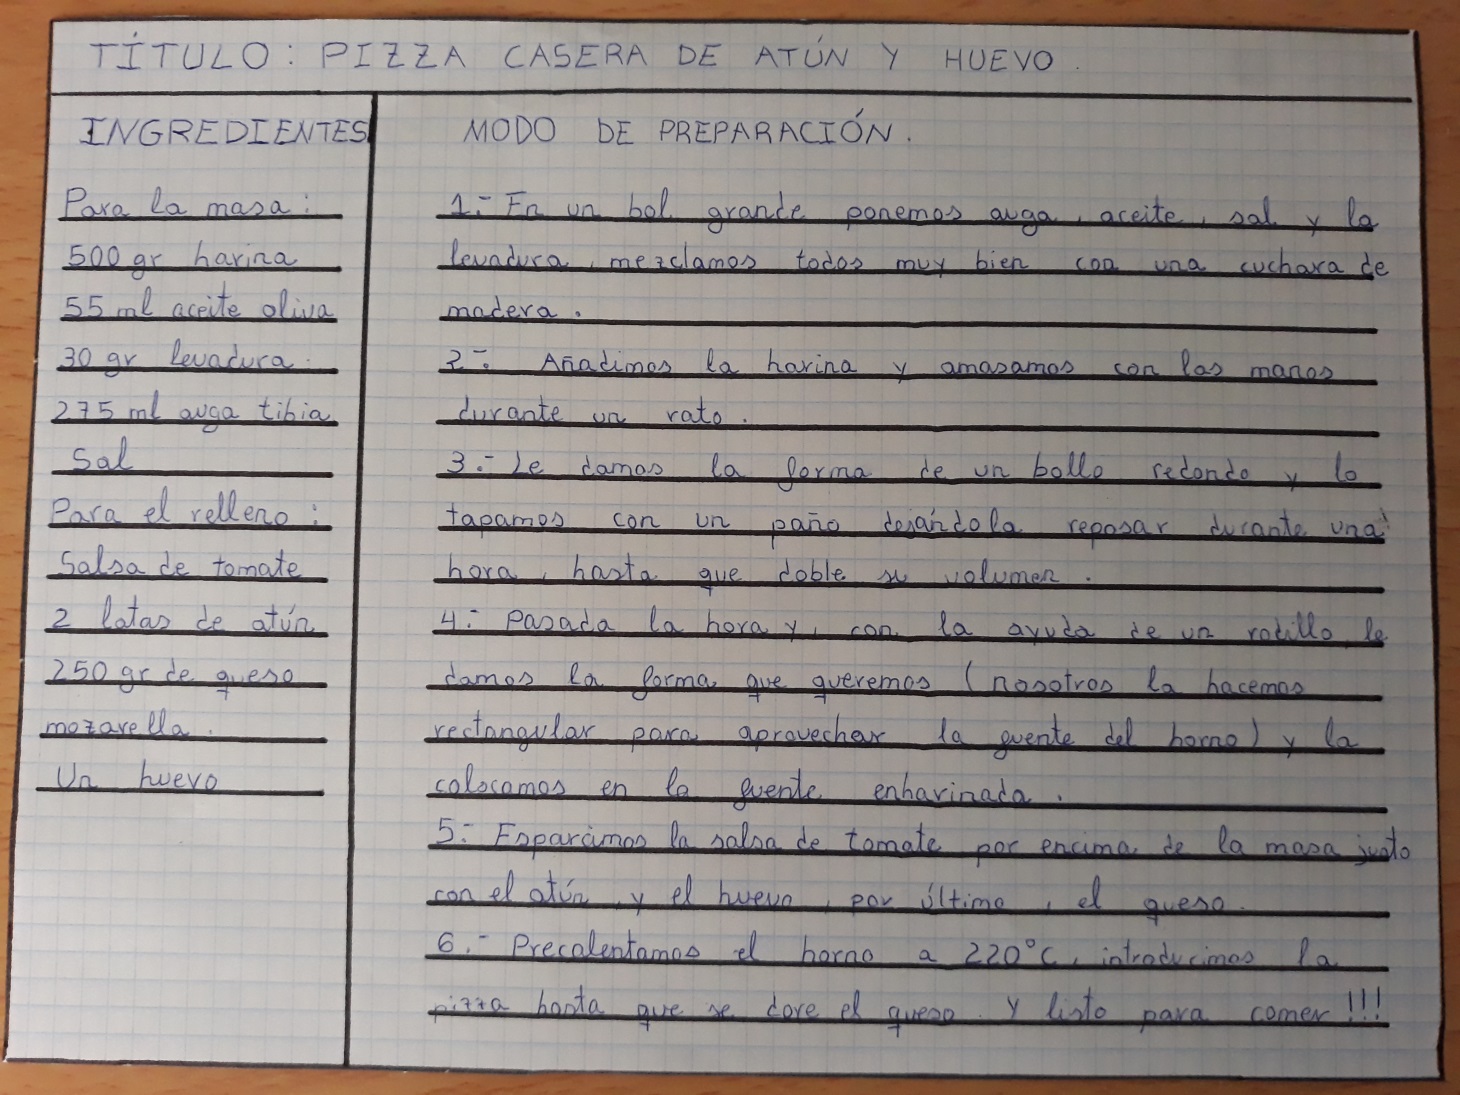 TÍTULO: PIZZA CASERA DE ATÚN Y HUEVO.
INGREDIENTES
Para la masa:
500 gr harina
55 ml aceite oliva
30 gr levadura.
275 ml auga tibia
Sal
Para el relleno:
Salsa de tomate
2 latas de atún
250 gr de queso
mozarella.
Un huevo
MODO DE PREPARACIÓN.
1.- En un bol grande ponemos auga, aceite, sal y la
levadura, mezclamos todos muy bien con una cuchara de
madera.
2.- Añadimos la harina y amasamos con las manos
durante un rato.
3.- Le damos la forma de un bollo redondo y lo
tapamos con un paño dejándola reposar durante una
hora, hasta que doble su volumen.
4.- Pasada la hora y, con la ayuda de un rodillo, le
damos la forma que queremos (nosotros la hacemos
rectangular para aprovechar la guente del horno) y la
colocamos en la guente enharinada.
5.- Esparcimos la salsa de tomate por encima de la masa justo
con el atún y el huevo, por último, el queso.
6.- Precalentamos el horno a 220°C, introducimos la
pizza hasta que se dore el queso. Y listo para comer!!!